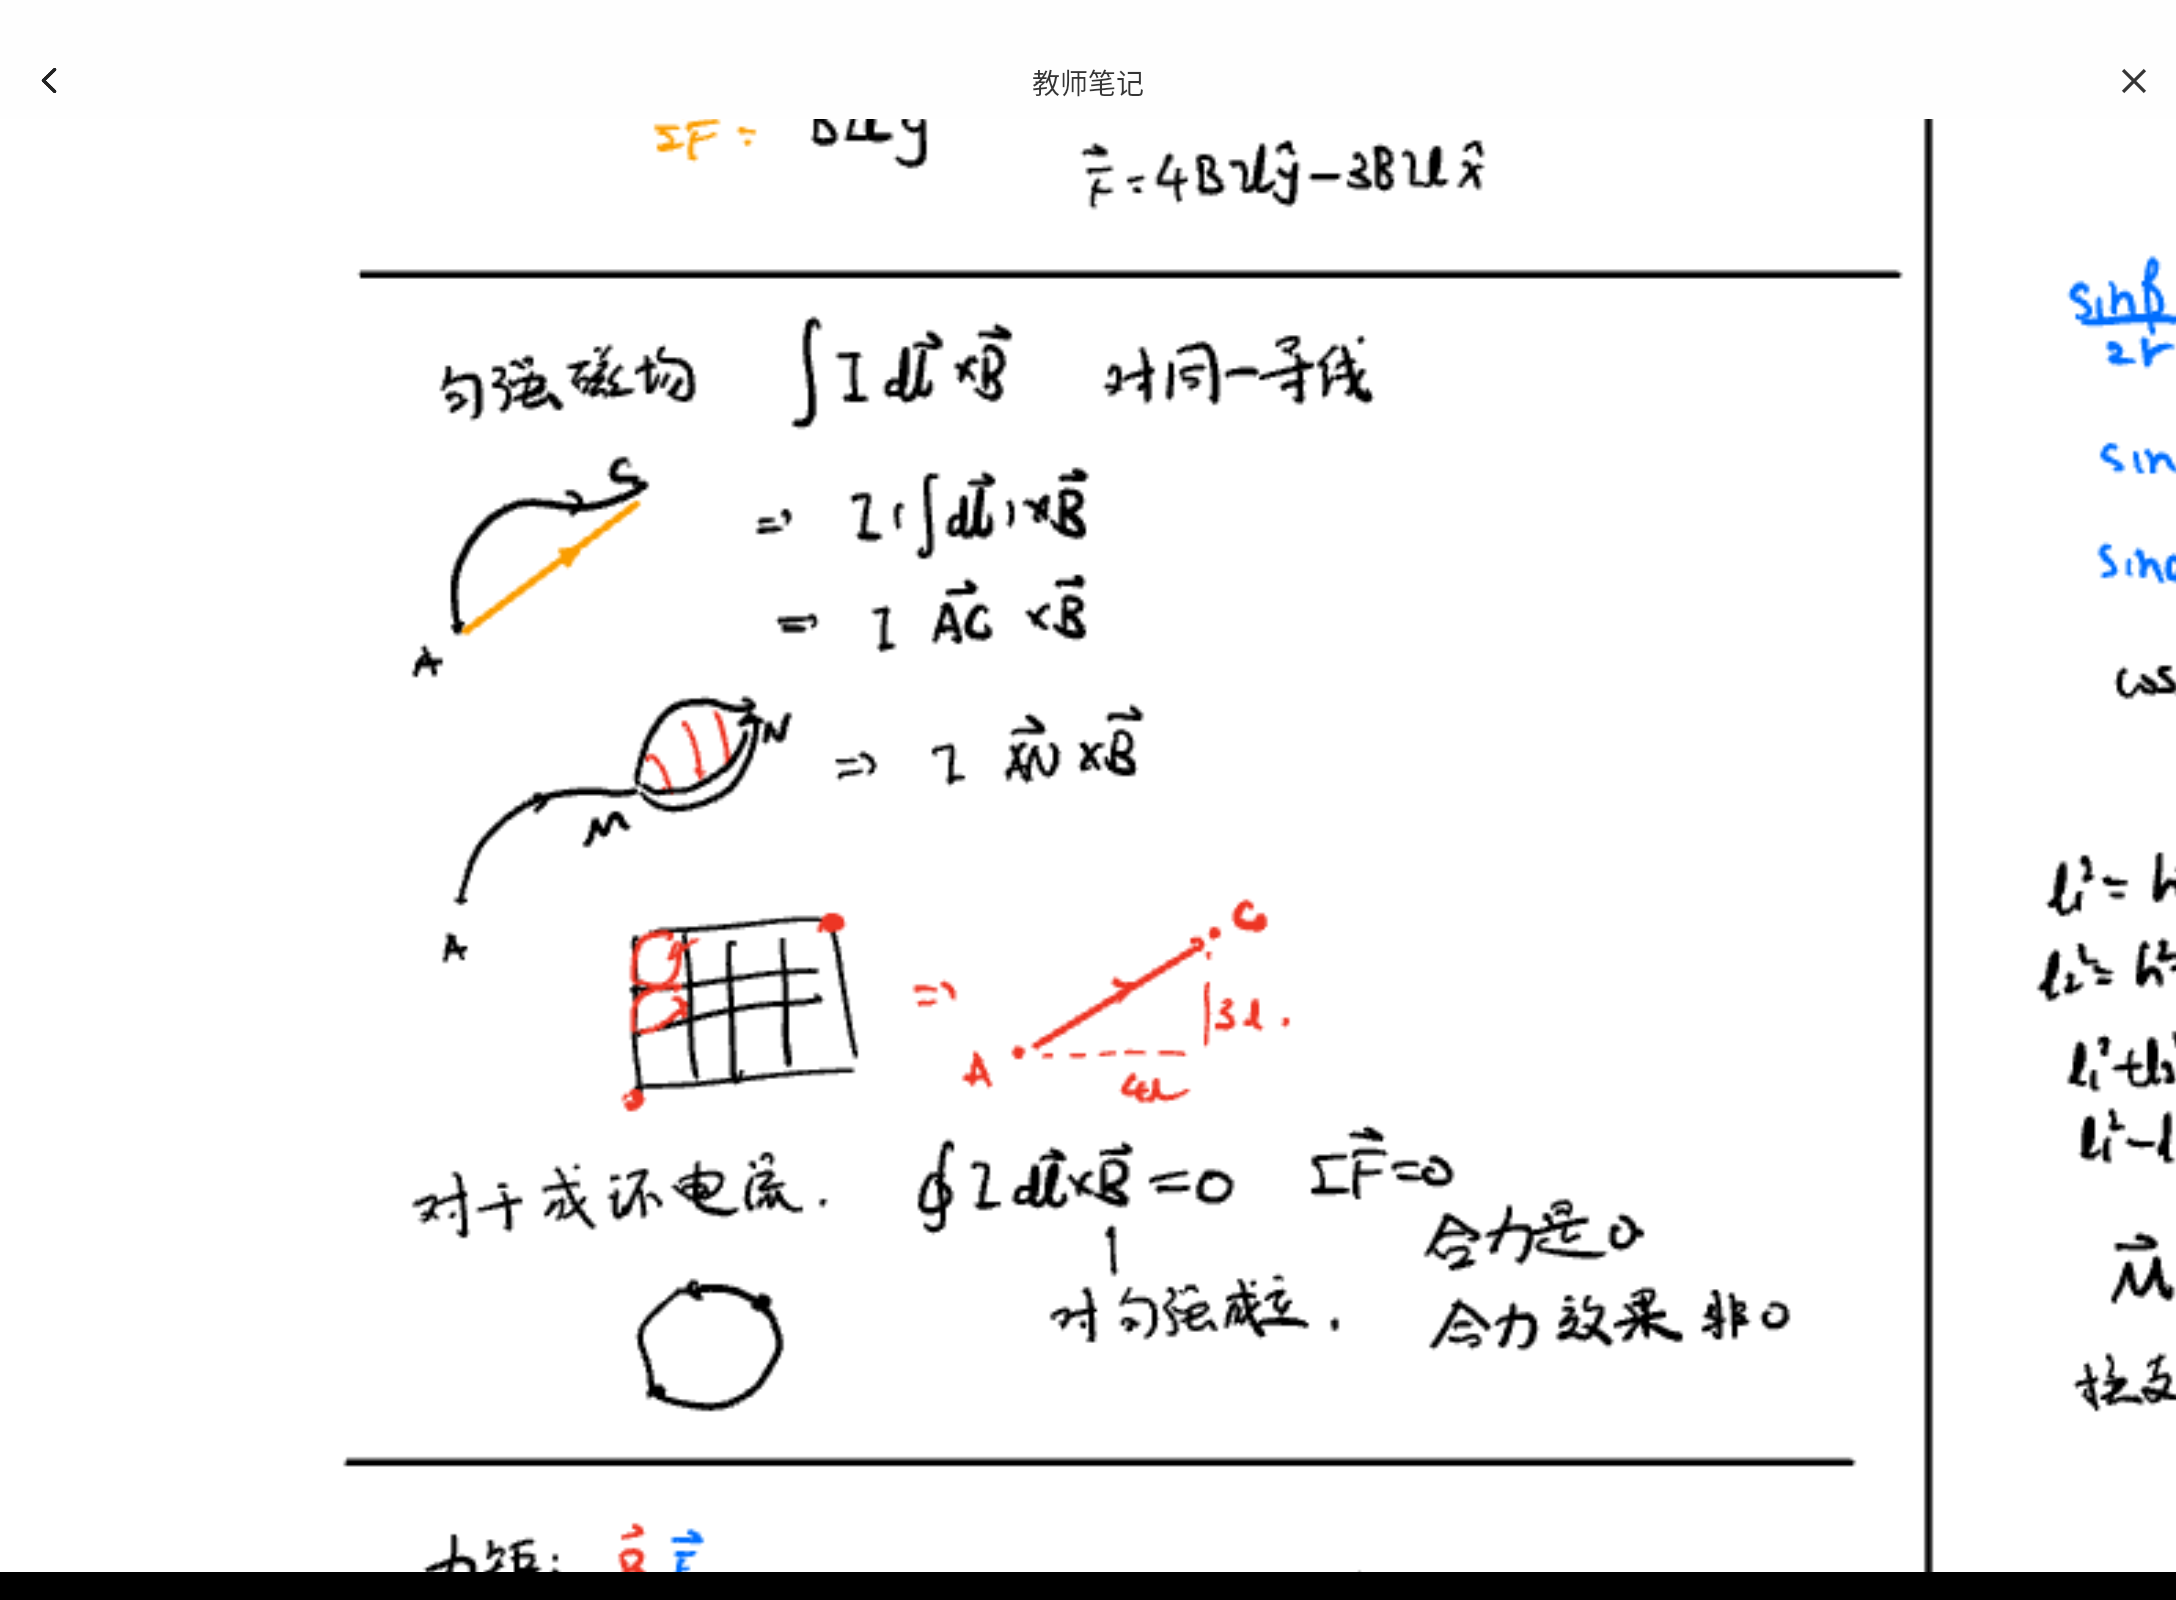 教师笔记
ΣF =
F⃗ = 4BIl ŷ − 3BIl x̂
匀强磁场 ∫ I dl⃗ × B⃗ 对同一导线
C
⇒ I (∫ dl⃗) × B⃗
⇒ I AC⃗ × B⃗
A
N
⇒ I AN⃗ × B⃗
M
A
C
⇒
3l.
A
4l
对于成环电流. ∮ I dl⃗ × B⃗ = 0 ΣF⃗ = 0
合力是0
对匀强成立. 合力效果非0
力矩:
sinβ
2r
sin
cos
l₁² =
l₂² = h²
l₁² + l₂
l₁² − l
M⃗